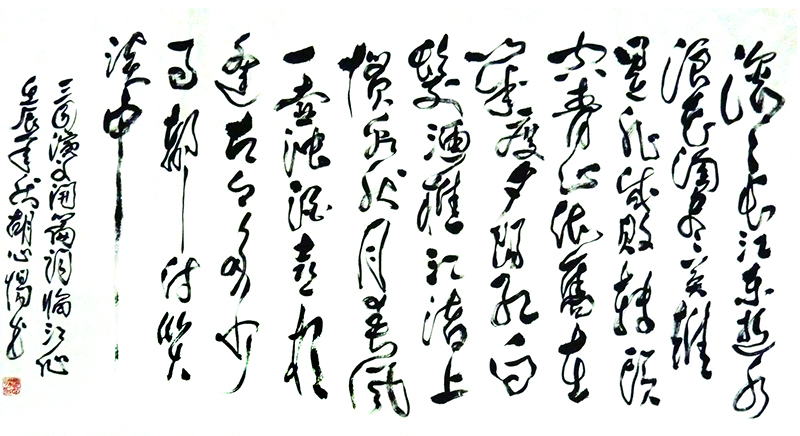 滚滚长江东逝水
浪花淘尽英雄
是非成败转头
空青山依旧在
几度夕阳红白
发渔樵江渚上
惯看秋月春风
一壶浊酒喜相
逢古今多少
事都付笑
谈中
三国演义开篇词临江仙
壬辰年秋胡心